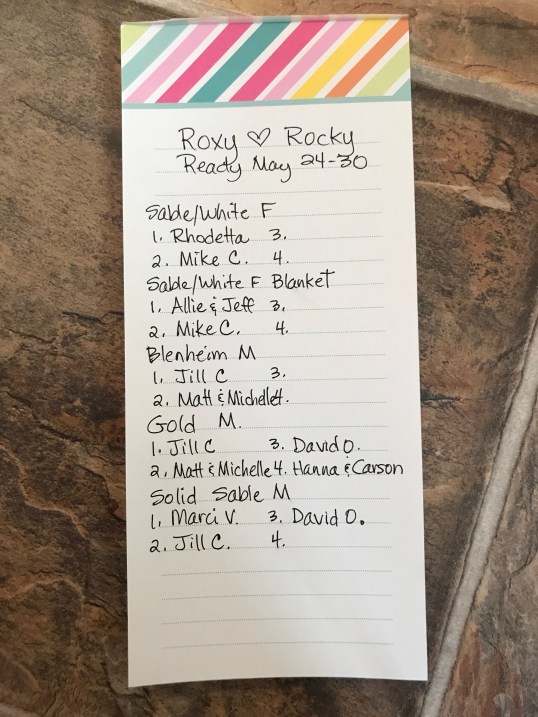 Roxy ♡ Rocky
Ready May 24-30
Sable/White F
1. Rhodetta 3.
2. Mike C. 4.
Sable/White F Blanket
1. Allie & Jeff 3.
2. Mike C. 4.
Blenheim M
1. Jill C 3.
2. Matt & Michelle 4.
Gold M.
1. Jill C 3. David O.
2. Matt & Michelle 4. Hanna & Carson
Solid Sable M
1. Marci V. 3. David O.
2. Jill C. 4.